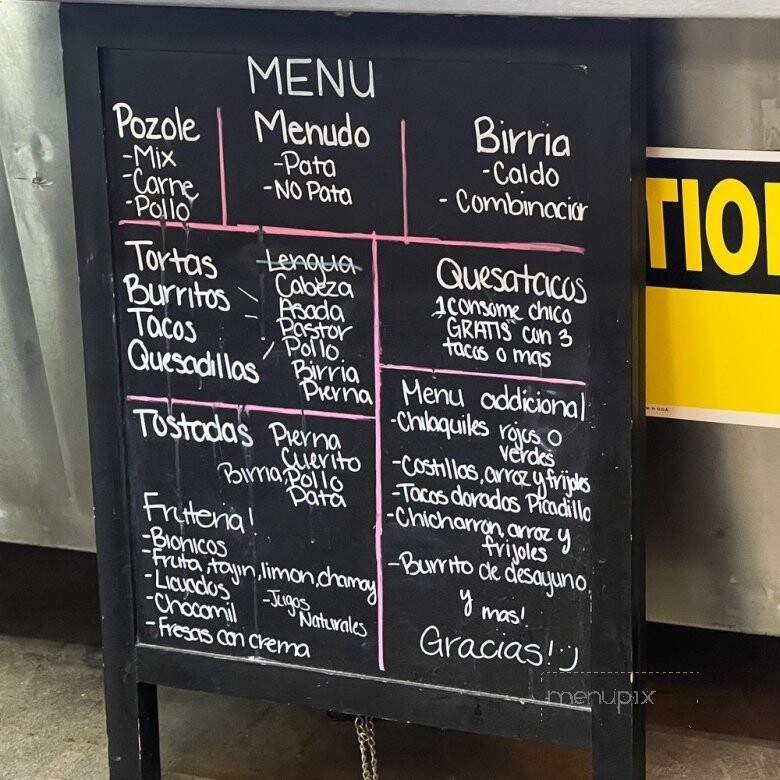 MENU
Pozole
-Mix
-Carne
-Pollo
Menudo
-Pata
-NO Pata
Birria
-Caldo
- Combinacior
Tortas
Burritos
Tacos
Quesadillas
Lengua
Cabeza
Asada
Pastor
Pollo
Birria
Pierna
Quesatacos
1 consome chico
GRATIS con 3
tacos o mas
Tostadas Pierna
Cuerito
Birria Pollo
Pata
Menu addicional
-Chilaquiles rojos o
verdes
-Costillas, arroz y frijoles
-Tacos dorados Picadillo
-Chicharron, arroz y
frijoles
-Burrito de desayuno
y mas!
Gracias! :)
Fruteria!
-Bionicos
-Fruta, tajin, limon, chamoy
-Licuados
-Chocomil
-Jugos
Naturales
-Fresas con crema
TIO
in U.S.A.
menupix